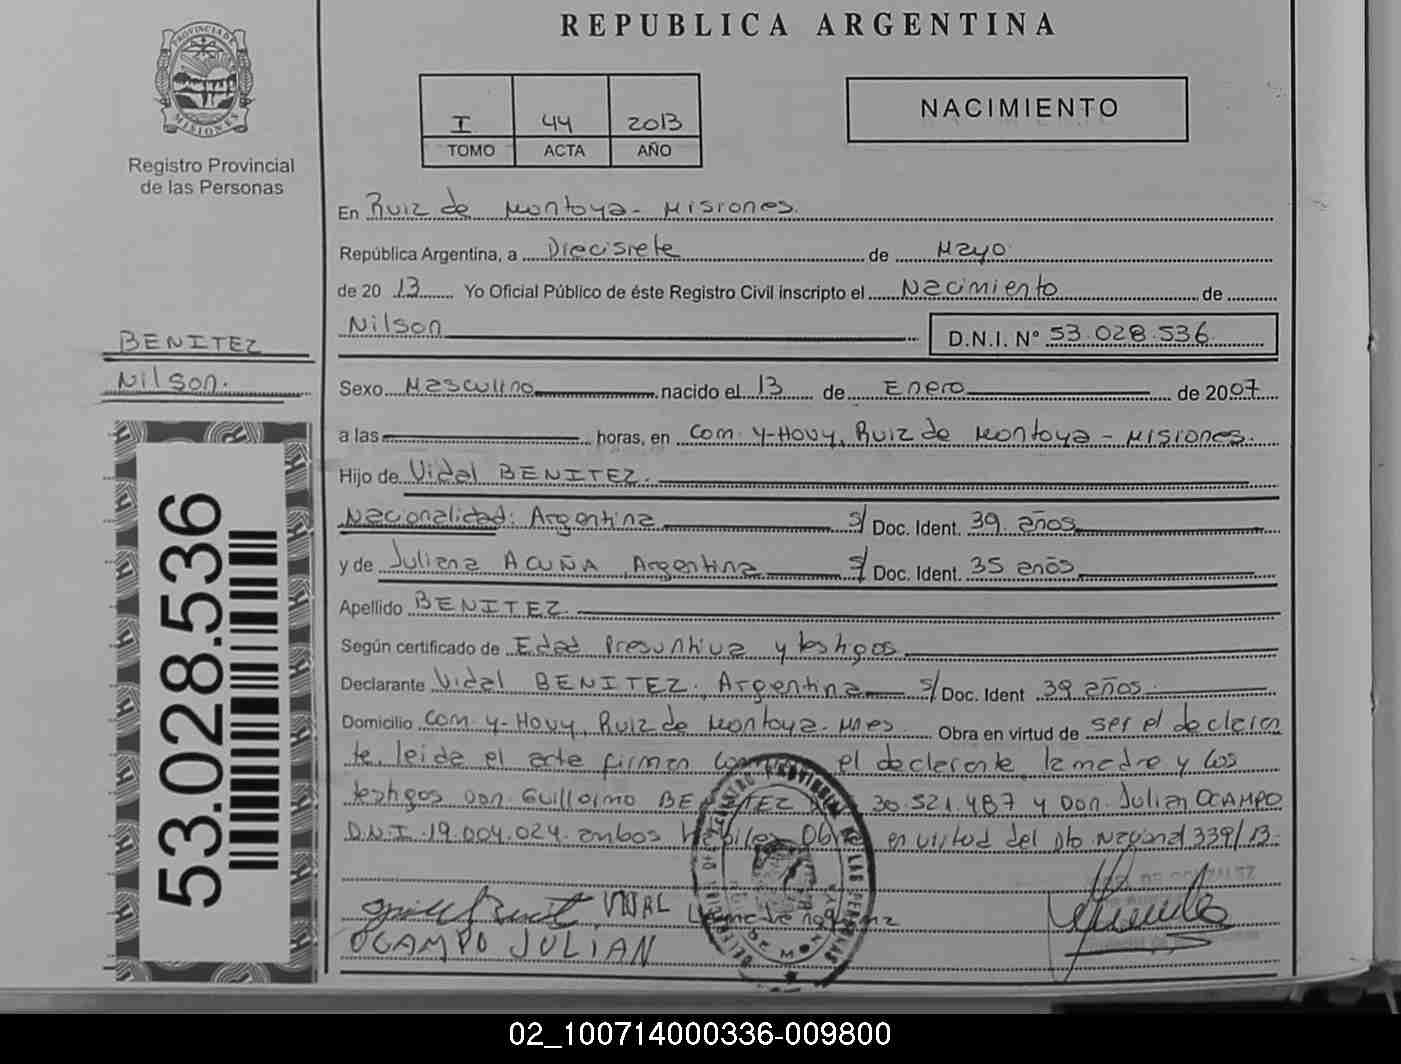 REPUBLICA ARGENTINA
PROVINCIA DE
MISIONES
Registro Provincial
de las Personas
I 44 2013
TOMO ACTA AÑO
NACIMIENTO
En Ruiz de Montoya - Misiones.
República Argentina, a Diecisiete de Mayo
de 20 13 Yo Oficial Público de éste Registro Civil inscripto el Nacimiento de
Nilson D.N.I. Nº 53.028.536
BENITEZ
Nilson.
Sexo Masculino nacido el 13 de Enero de 2007
a las horas, en Com. Y-Hovy, Ruiz de Montoya - Misiones.
Hijo de Vidal BENITEZ.
Nacionalidad: Argentina s/ Doc. Ident. 39 años
y de Juliana ACUÑA Argentina s/ Doc. Ident. 35 años
Apellido BENITEZ
Según certificado de Edad Presuntiva y testigos
Declarante Vidal BENITEZ, Argentina s/ Doc. Ident 39 años
Domicilio Com. Y-Hovy, Ruiz de Montoya - Mnes. Obra en virtud de ser el declaran
te, leida el acta firman el declarante, la madre y los
testigos Don. Guillermo BENITEZ 30.521.487 y Don. Julian OCAMPO
D.N.I. 19.004.024 ambos habiles. Obra en virtud del Dto. Nacional 339/13.
VIDAL La madre no firma
OCAMPO JULIAN
53.028.536
02_100714000336-009800